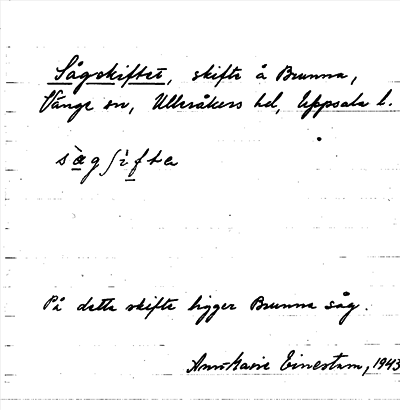 Sågskiftet, skifte å Brunna,
Vänge sn, Ulleråkers hd, Uppsala l.
sà̱gʃì̱fta
På detta skifte ligger Brunna såg.
Ann-Marie Einestam, 1943